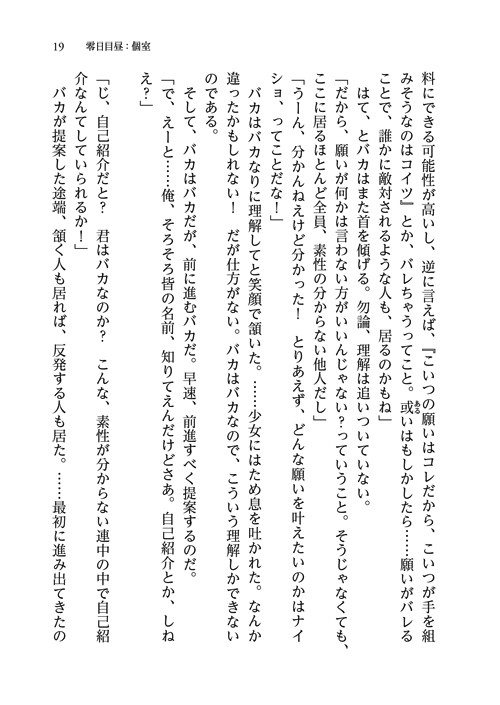 19　零日目昼：個室
料にできる可能性が高いし、逆に言えば、『こいつの願いはコレだから、こいつが手を組
みそうなのはコイツ』とか、バレちゃうってこと。或いはもしかしたら……願いがバレる
ことで、誰かに敵対されるような人も、居るのかもね」
はて、とバカはまた首を傾げる。勿論、理解は追いついていない。
「だから、願いが何かは言わない方がいいんじゃない？っていうこと。そうじゃなくても、
ここに居るほとんど全員、素性の分からない他人だし」
「うーん、分かんねえけど分かった！　とりあえず、どんな願いを叶えたいのかはナイ
ショ、ってことだな！」
バカはバカなりに理解してと笑顔で頷いた。……少女にはため息を吐かれた。なんか
違ったかもしれない！　だが仕方がない。バカはバカなので、こういう理解しかできない
のである。
そして、バカはバカだが、前に進むバカだ。早速、前進すべく提案するのだ。
「で、えーと……俺、そろそろ皆の名前、知りてえんだけどさあ。自己紹介とか、しね
え？」
「じ、自己紹介だと？　君はバカなのか？　こんな、素性が分からない連中の中で自己紹
介なんてしていられるか！」
バカが提案した途端、頷く人も居れば、反発する人も居た。……最初に進み出てきたの